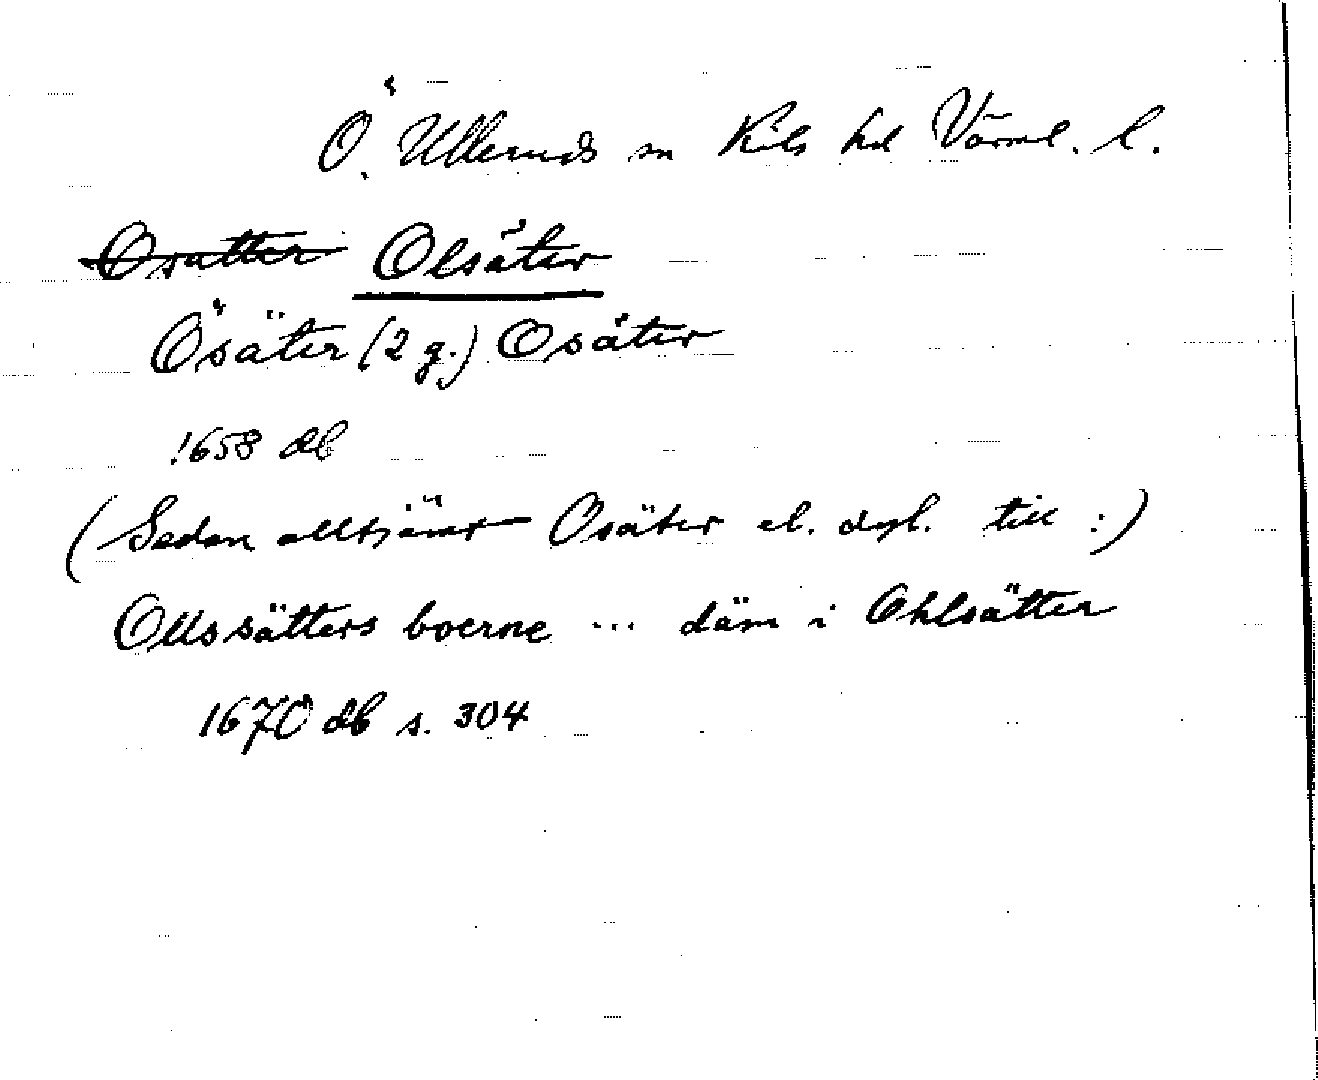 Ö. Ulleruds sn Kils hd Värml. l.
Osätter Olsäter
Ösäter (2 g.) Osäter
1658 db
(Sedan alltjämt Osäter el. dyl. till :)
Ollssätters boerne ... däm i Ohlsätter
1670 db s. 304